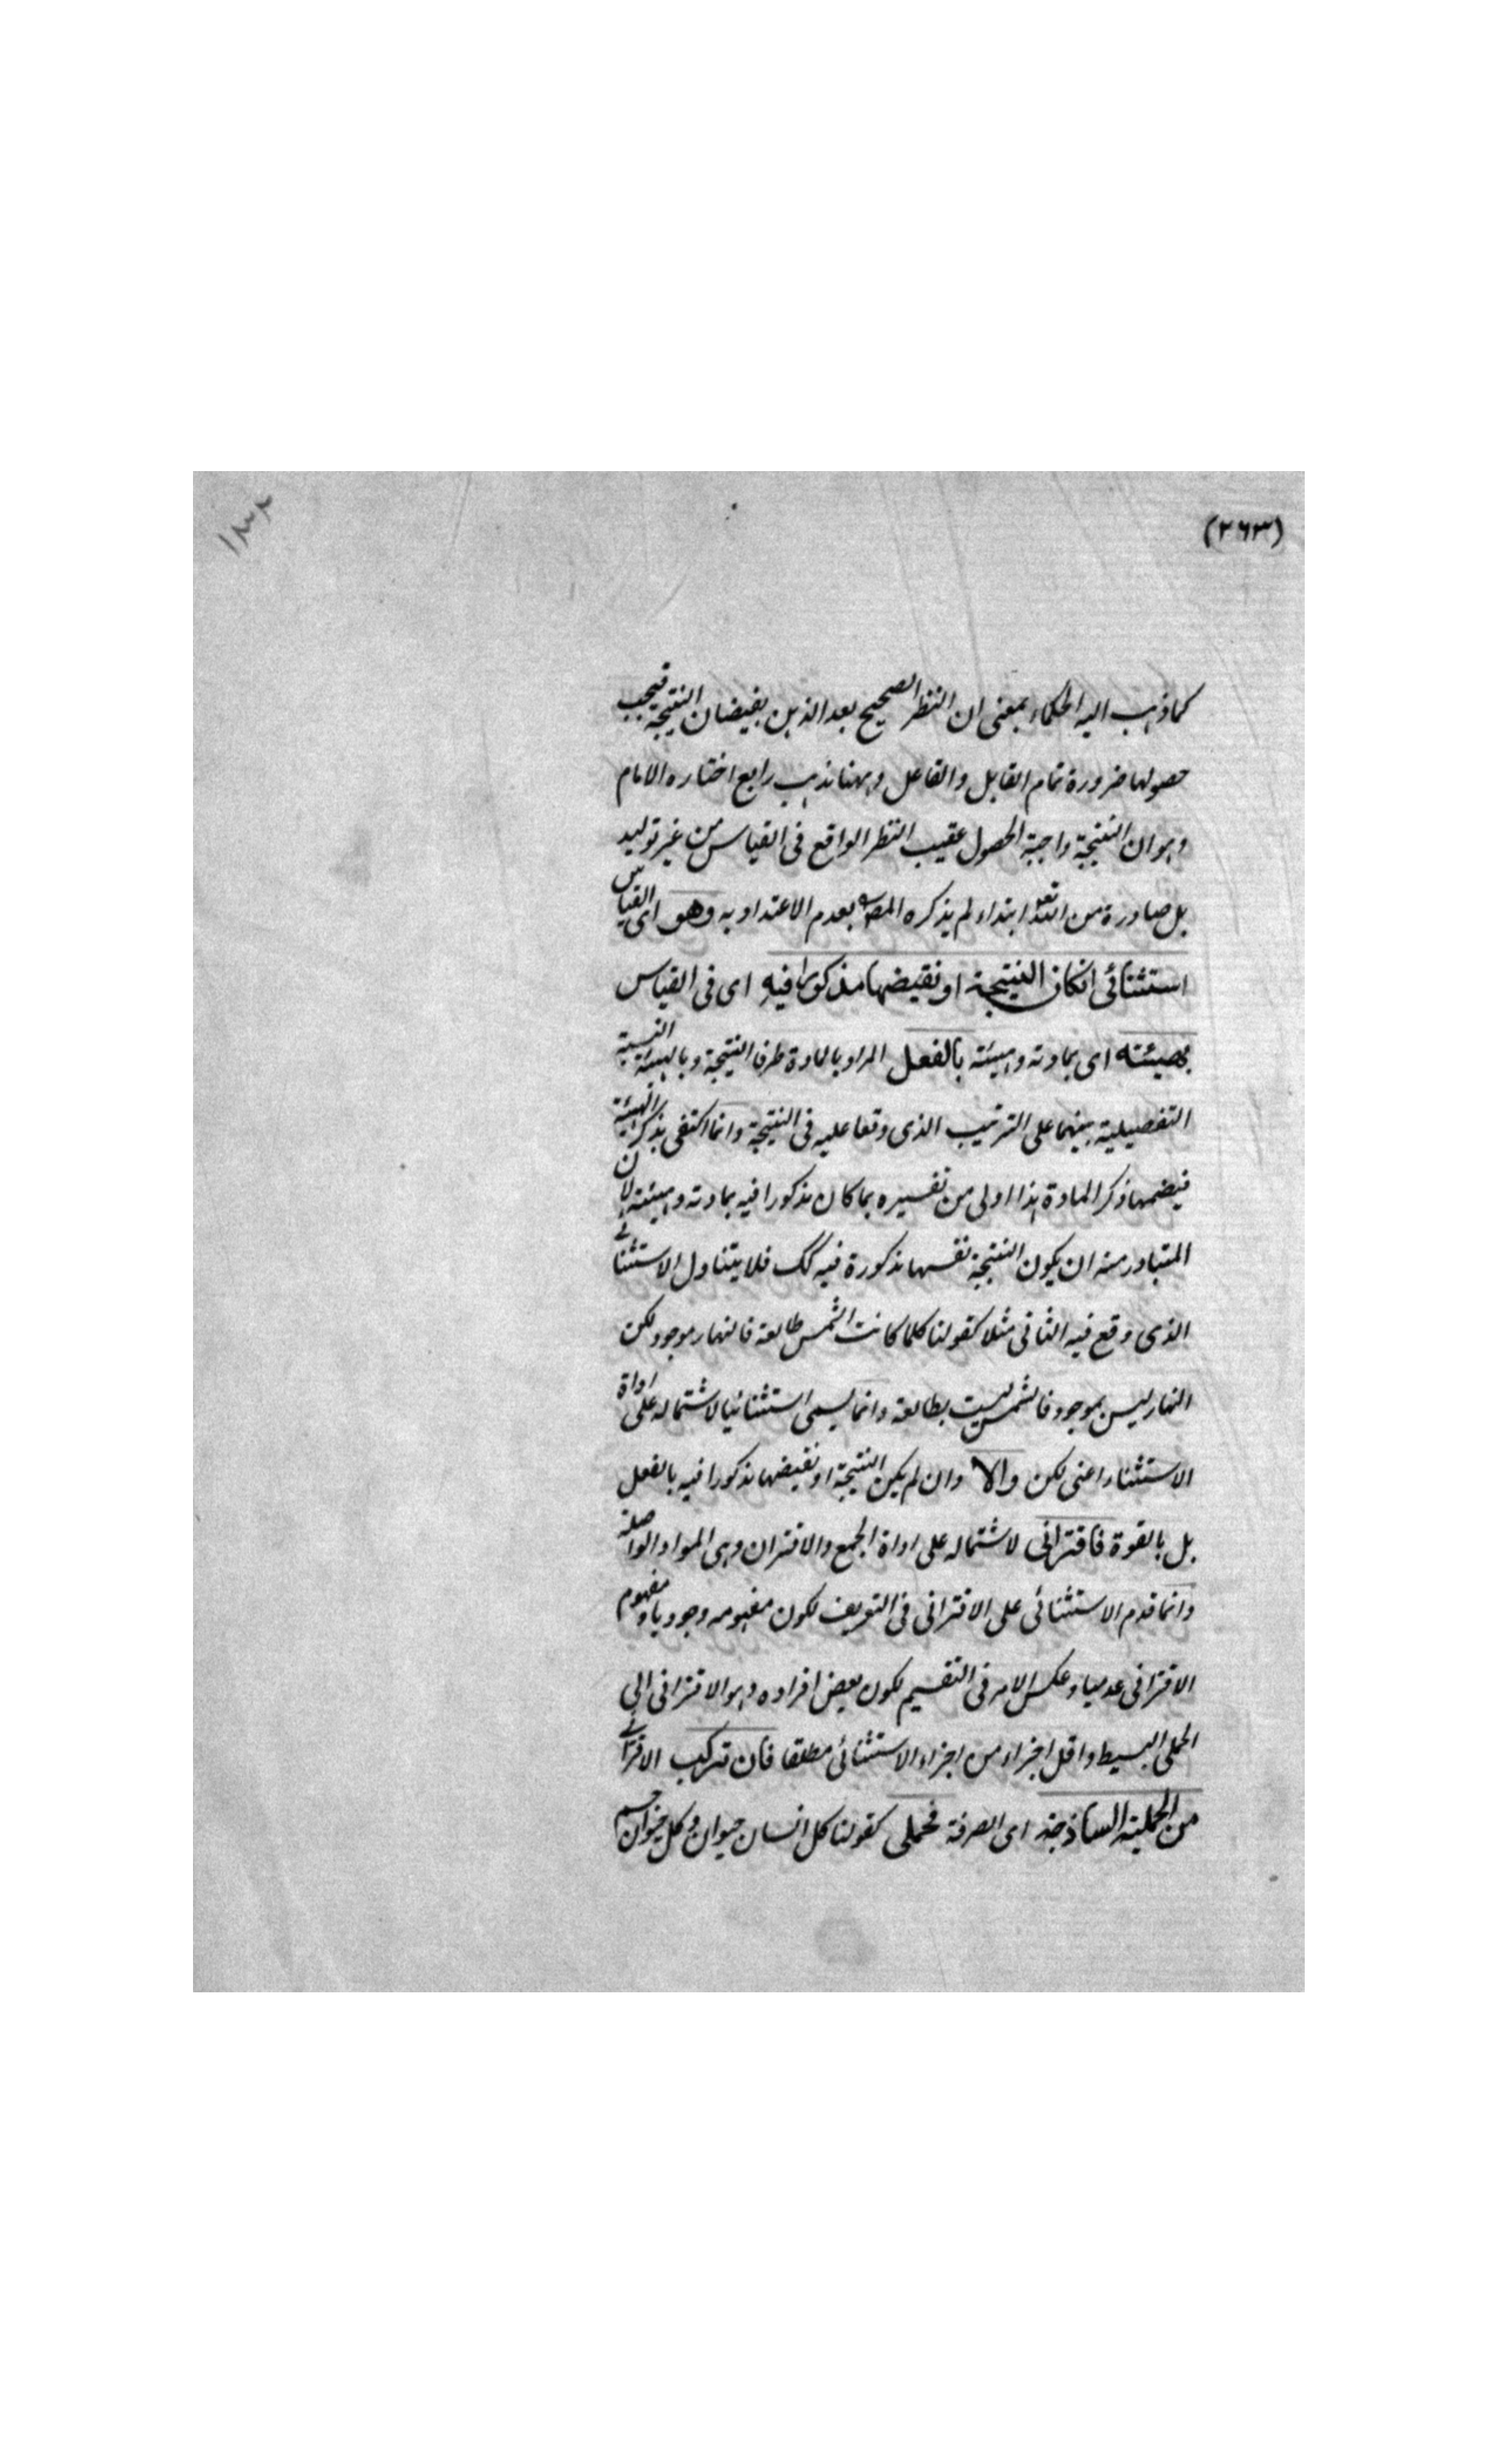 (٢٦٣)
١٣٢
كما ذهب اليه الحكماء بمعنى ان النظر الصحيح يعد الذهن بفيضان النتيجة فيجب
حصولها ضرورة تمام القابل والفاعل وههنا مذهب رابع اختاره الامام
وهو ان النتيجة واجبة الحصول عقيب النظر الواقع فى القياس من غير توليد
بل صادرة من الله تعه ابتداء لم يذكره المص بعدم الاعتداد به وهو اى القياس
استثنائى انكان النتيجة او نقيضها مذكورا فيه اى فى القياس
بهيئته اى بمادته وهيئته بالفعل المراد بالمادة طرفا النتيجة وبالهيئة النسبية
التفصيلية بينهما على الترتيب الذى وقعا عليه فى النتيجة وانما اكتفى بذكر الهيئة
فيضمها ذكر المادة هذا اولى من تفسيره بما كان مذكورا فيه بمادته وهيئته لان
المتبادر منه ان يكون النتيجة نفسها مذكورة فيه كك فلا يتناول الاستثنائى
الذى وقع فيه الثانى مثلا كقولنا كلما كانت الشمس طالعة فالنهار موجود لكن
النهار ليس بموجود فالشمس ليست بطالعة وانما يسمى استثنائيا لاشتماله على اداة
الاستثناء اعنى لكن والا وان لم يكن النتيجة او نقيضها مذكورا فيه بالفعل
بل بالقوة فاقترانى لاشتماله على اداة الجمع والاقتران وهى المواد الواصلة
وانما قدم الاستثنائى على الاقترانى فى التعريف لكون مفهومه وجوديا ومفهوم
الاقترانى عدميا وعكس الامر فى التقسيم لكون بعض افراده وهو الاقترانى الى
الحملى البسيط واقل اجزاء من اجزاء الاستثنائى مطلقا فان تركب الاقترانى
من الحملية الساذجة اى الصرفة فحملى كقولنا كل انسان حيوان وكل حيوان جسم